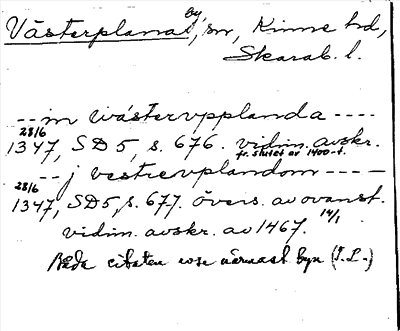 Västerplana by, sn, Kinne hd,
Skarab. l.
---in wästerupplanda----
28/6 1347, SD5, s. 676. vidim. avskr.
fr. slutet av 1400-t.
--j vestreuplandom----
28/6 1347, SD5, s. 677. övers. av ovanst.
vidim. avskr. av 1467. 14/1
Båda citaten avse närmast byn (I.L.)